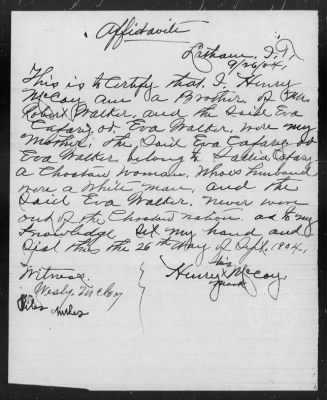 Affidavite
Latham, I.T.
9/26/04,
This is to Certify that I Henry
McCoy am a Brother, of Mr.
Robert Walker, and the Said Eva
Cafary, or Eva Walker, were my
Mother; The Said Eva Cafary or
Eva Walker belong to Cafary
A Choctaw Woman, Whoes husband
were a White man, and the
Said Eva Walker, Never were
out of the Choctaw nation as to my
Knowledge, Set my hand and
Seal this the 26th Day of Sept, 1904,
his
Witness. Henry X McCoy,
mark
Wesly McCoy